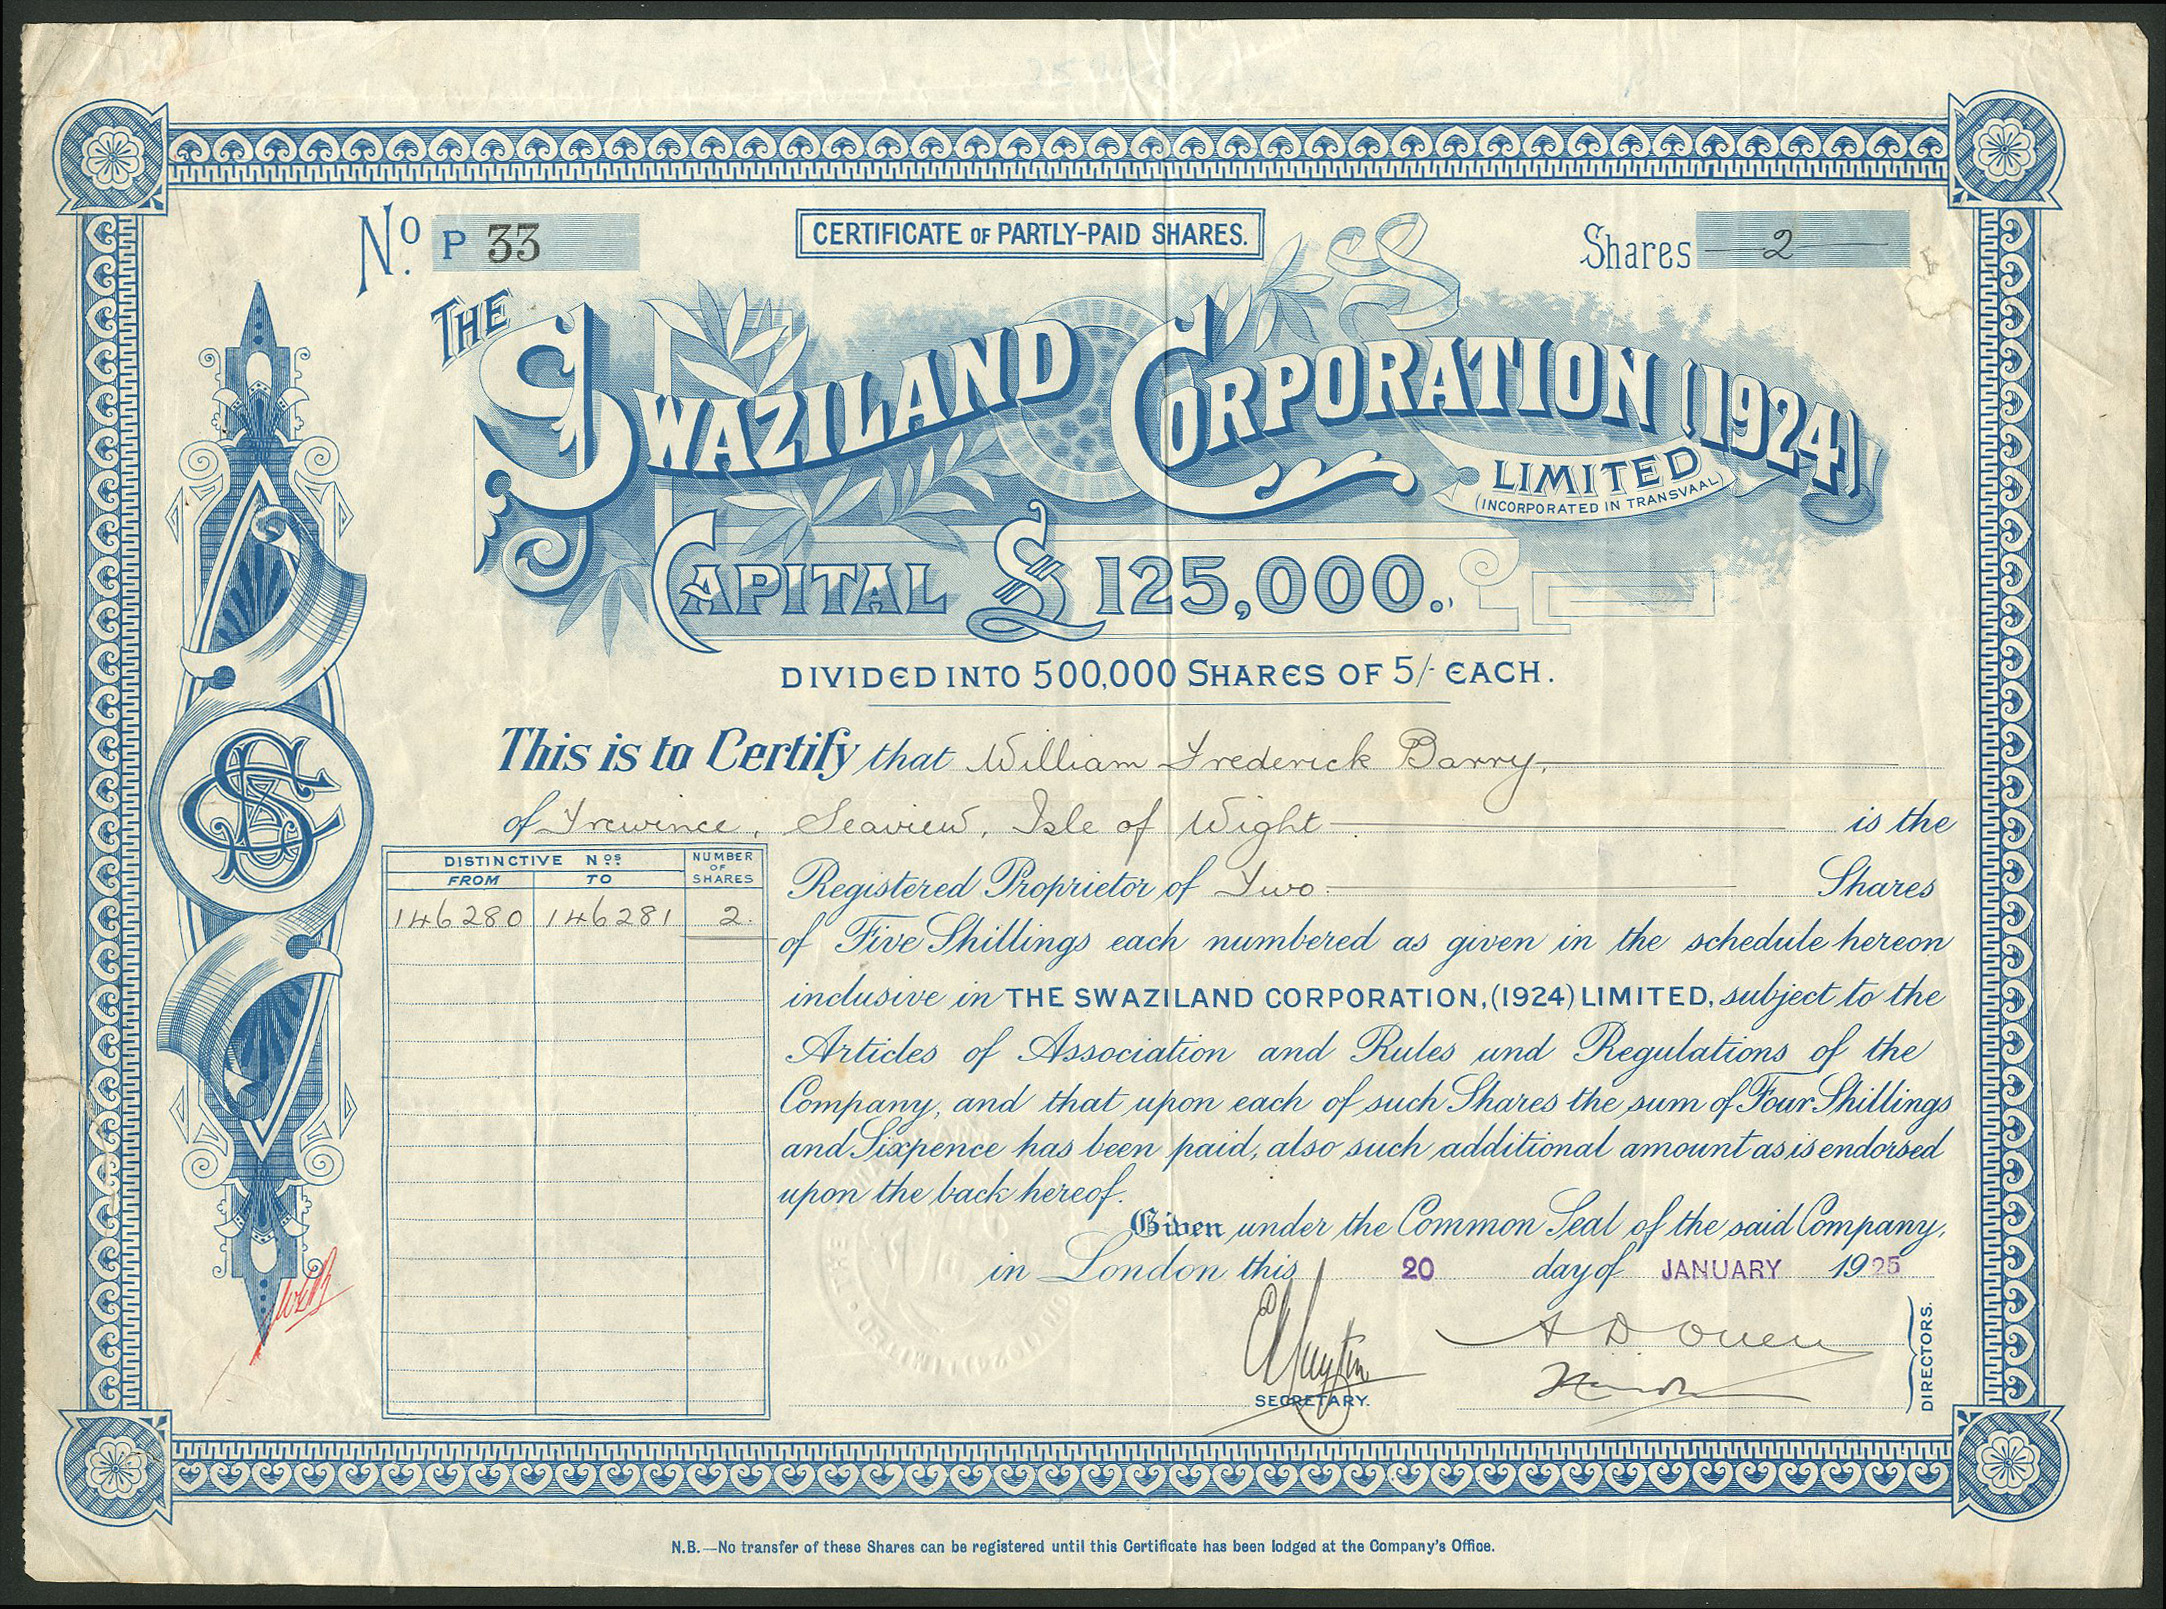 No. P 33
CERTIFICATE OF PARTLY-PAID SHARES.
Shares 2
THE SWAZILAND CORPORATION (1924)
LIMITED
(INCORPORATED IN TRANSVAAL)
CAPITAL £125,000.
DIVIDED INTO 500,000 SHARES OF 5/- EACH.
This is to Certify that William Frederick Barry,
of Trewince, Seaview, Isle of Wight is the
DISTINCTIVE Nos. NUMBER OF SHARES
FROM TO
146280 146281 2.
Registered Proprietor of Two Shares
of Five Shillings each numbered as given in the schedule hereon
inclusive in THE SWAZILAND CORPORATION, (1924) LIMITED, subject to the
Articles of Association and Rules and Regulations of the
Company, and that upon each of such Shares the sum of Four Shillings
and Sixpence has been paid, also such additional amount as is endorsed
upon the back hereof.
Given under the Common Seal of the said Company,
in London this 20 day of JANUARY 1925
A D Owen
SECRETARY.
DIRECTORS.
N.B.—No transfer of these Shares can be registered until this Certificate has been lodged at the Company's Office.